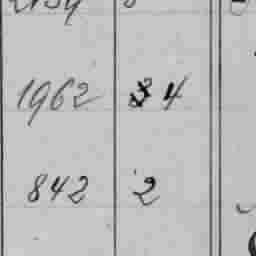 1962 4
842 2